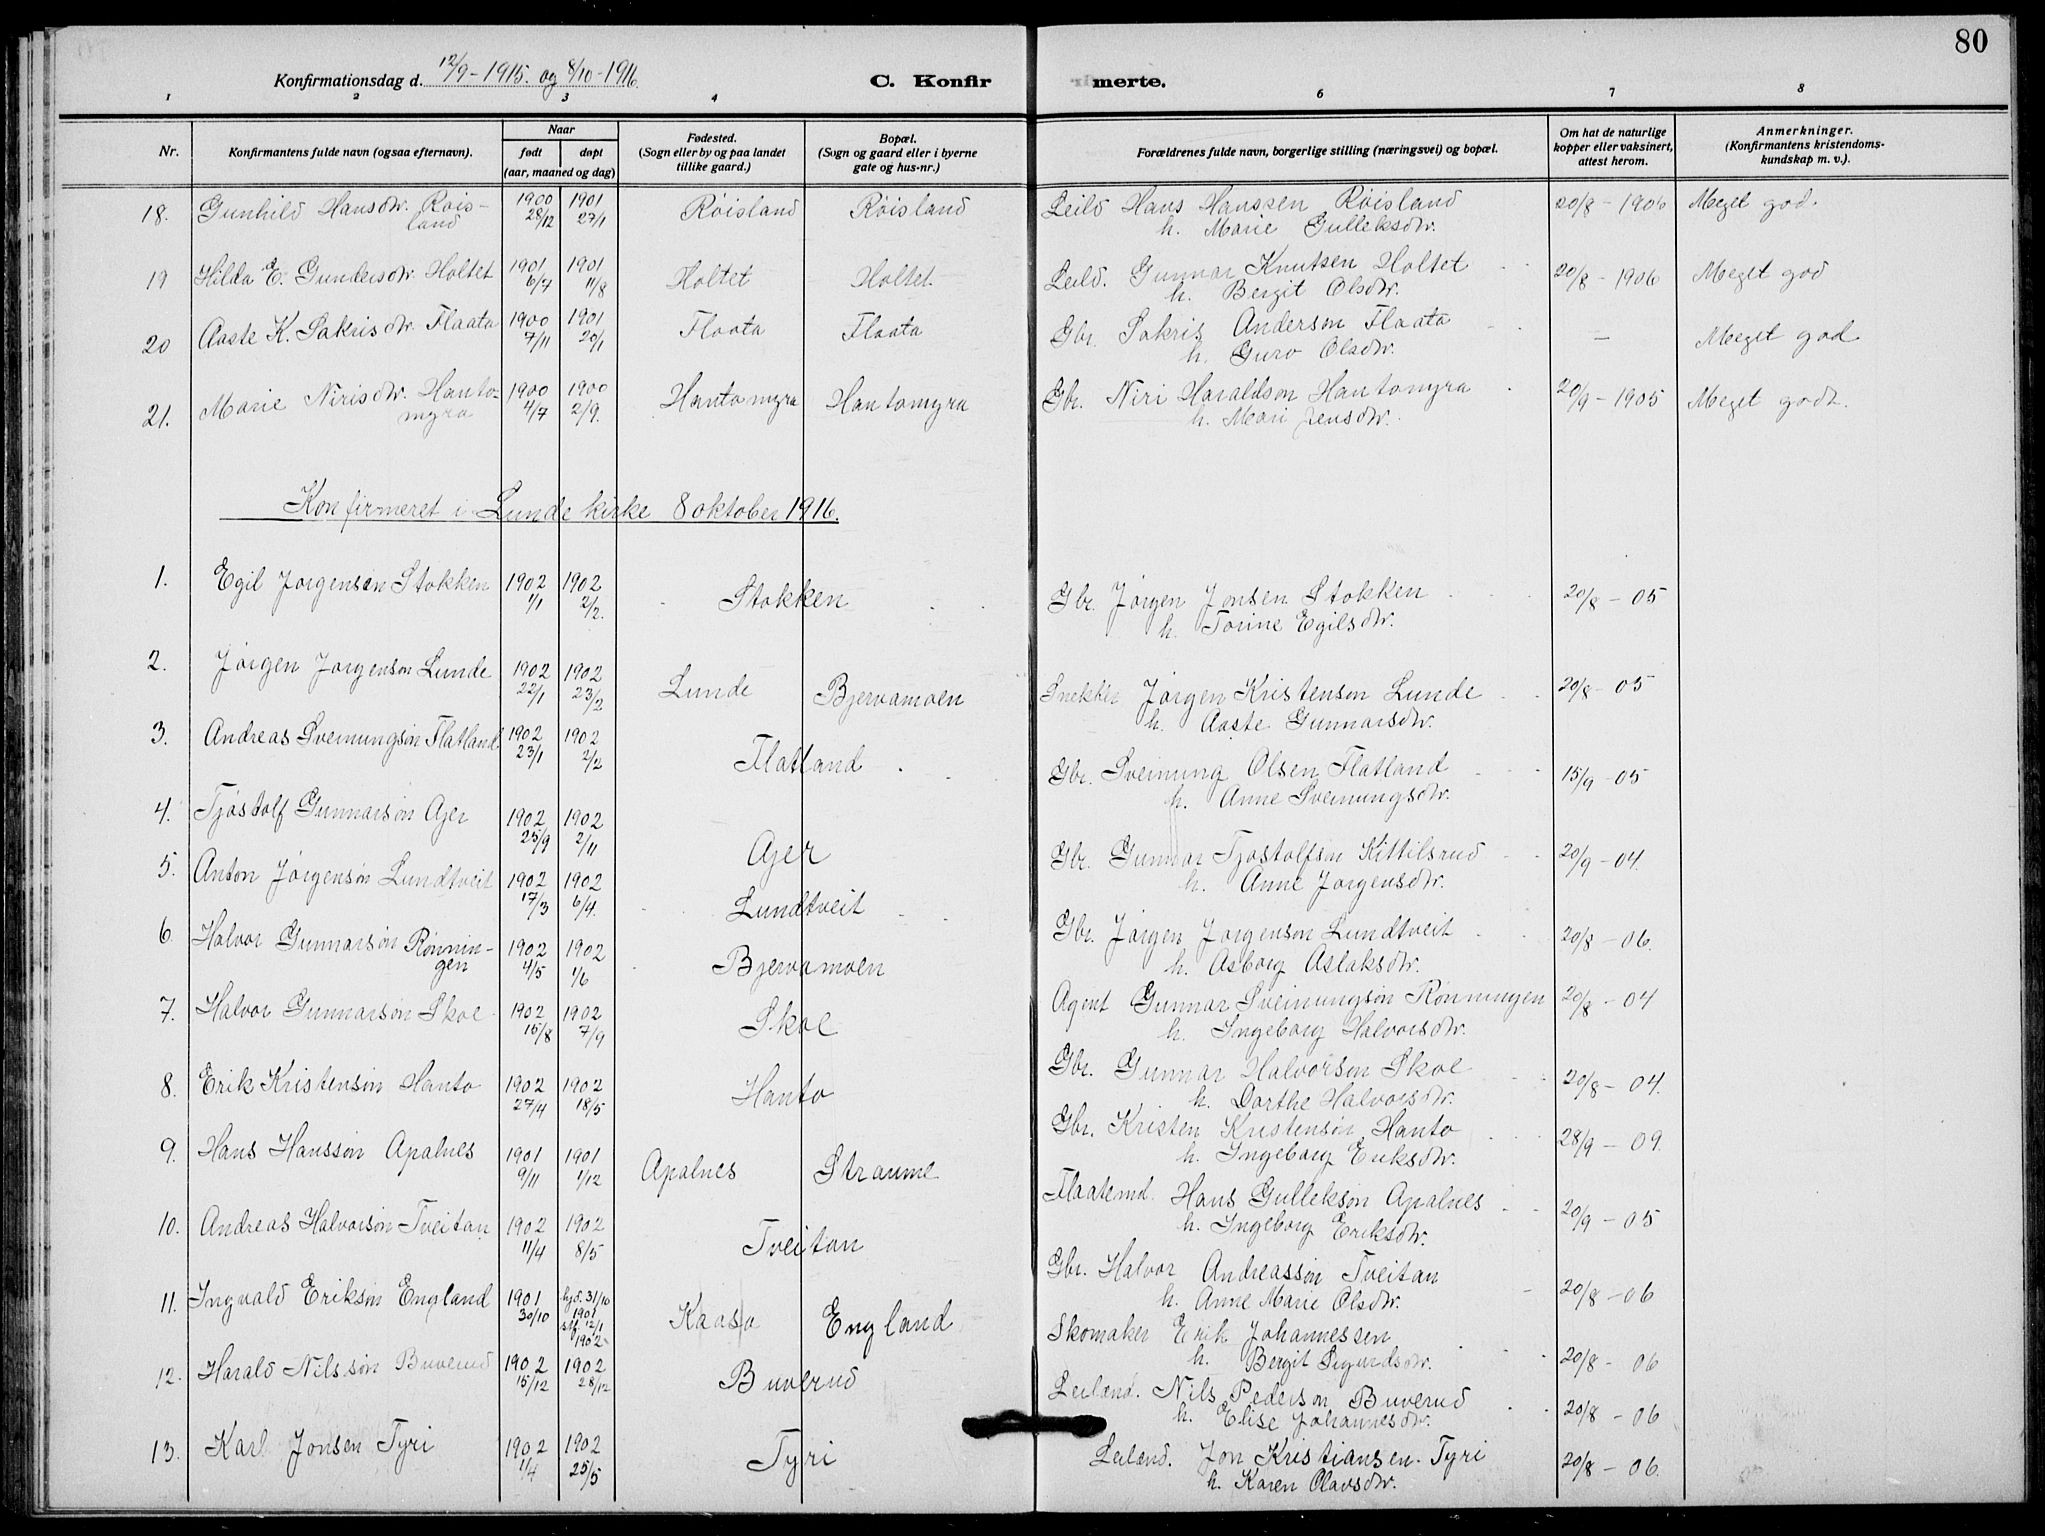 80
Konfirmationsdag d. 12/9 - 1915. og 8/10 - 1916.
C. Konfirmerte.
1 2 3 4 6 7 8
Nr. Konfirmantens fulde navn (ogsaa efternavn). Naar født døpt (aar, maaned og dag) Fødested. (Sogn eller by og paa landet tillike gaard.) Bopæl. (Sogn og gaard eller i byerne gate og hus-nr.) Forældrenes fulde navn, borgerlige stilling (næringsvei) og bopæl. Om hat de naturlige kopper eller vaksinert, attest herom. Anmerkninger. (Konfirmantens kristendomskundskap m. v.).
18. Gunhild Hansdtr. Røis- 1900 1901 Røisland Røisland Leild Hans Hanssen Røisland 20/8 - 1906 Meget god.
land 28/12 27/1 h. Marie Gulleksdtr.
19 Hilda E. Gundersdtr. Holtet 1901 1901 Holtet Holtet. Leild. Gunnar Knutsen Holtet 20/8 - 1906 Meget god
6/7 11/8 h. Bergit Olsdtr.
20 Aaste K. Sakrisdtr. Flaata 1900 1901 Flaata Flaata Gbr. Sakris Anderson Flaata — Meget god
7/11 20/1 h. Guro Olsdtr.
21. Marie Nirisdtr. Hanto- 1900 1900 Hantomyra Hantomyra Gbr. Niri Haraldson Hantomyra 20/9 - 1905 Meget godt.
myra 4/7 2/9. h. Mari Jensdtr.
Konfirmeret i Lunde kirke 8 oktober 1916.
1. Egil Jørgensen Stokken 1902 1902 Stokken Gbr. Jørgen Jonsen Stokken 20/8 - 05
1/1 2/2. h. Torine Egilsdtr.
2. Jørgen Jørgenson Lunde 1902 1902 Lunde Bjervamoen Snekker Jørgen Kristenson Lunde 20/8 - 05
22/1 23/2 h. Aaste Gunnarsdtr.
3. Andreas Sveinungsøn Flatland 1902 1902 Flatland Gbr. Sveinung Olsen Flatland 15/9 - 05
23/1 2/2 h. Anne Sveinungsdtr.
4. Tjøstolf Gunnarsøn Ajer 1902 1902 Ajer Gbr. Gunnar Tjøstolfsøn Kittilsrud 20/9 - 04.
25/9 2/11 h. Anne Jørgensdtr.
5. Anton Jørgensøn Lundtveit 1902 1902 Lundtveit Gbr. Jørgen Jørgenson Lundtveit 20/8 - 06.
17/3 6/4. h. Asborg Aslaksdtr.
6 Halvor Gunnarsøn Rønnin- 1902 1902 Bjervamoen Agent Gunnar Sveinungsøn Rønningen 20/8 - 04
gen 4/5 1/6 h. Ingeborg Halvorsdtr.
7. Halvor Gunnarsøn Skoe 1902 1902 Skoe Gbr. Gunnar Halvorsøn Skoe 20/8 - 04.
15/8 7/9 h. Dorthe Halvorsdtr.
8. Erik Kristensøn Hanto 1902 1902 Hanto Gbr. Kristen Kristensøn Hanto 28/9 - 09.
27/4 18/5 h. Ingeborg Eriksdtr.
9. Hans Hanssøn Apalnes 1901 1901 Apalnes Straume Flaatemd. Hans Gulleksøn Apalnes 20/9 - 05
9/11 1/12 h. Ingeborg Eriksdtr.
10. Andreas Halvorsøn Tveitan 1902 1902 Tveitan Gbr. Halvor Andreassøn Tveitan 20/8 - 06
11/4 8/5 h. Anne Marie Olsdtr.
11. Ingvald Eriksøn England 1901 hjd. 31/10 Kaasa England Skomaker Erik Johannessen 20/8 - 06
30/10 1901 stf. 12/1 1902 h. Bergit Sigurdsdtr.
12. Harald Nilssøn Buverud 1902 1902 Buverud Leilænd. Nils Pederson Buverud 20/8 - 06
15/12 28/12 h. Elise Johannesdtr.
13. Karl Jonsen Tyri 1902 1902 Tyri Leilænd. Jon Kristiansen Tyri 20/8 - 06.
1/4 25/5 h. Karen Olavsdtr.